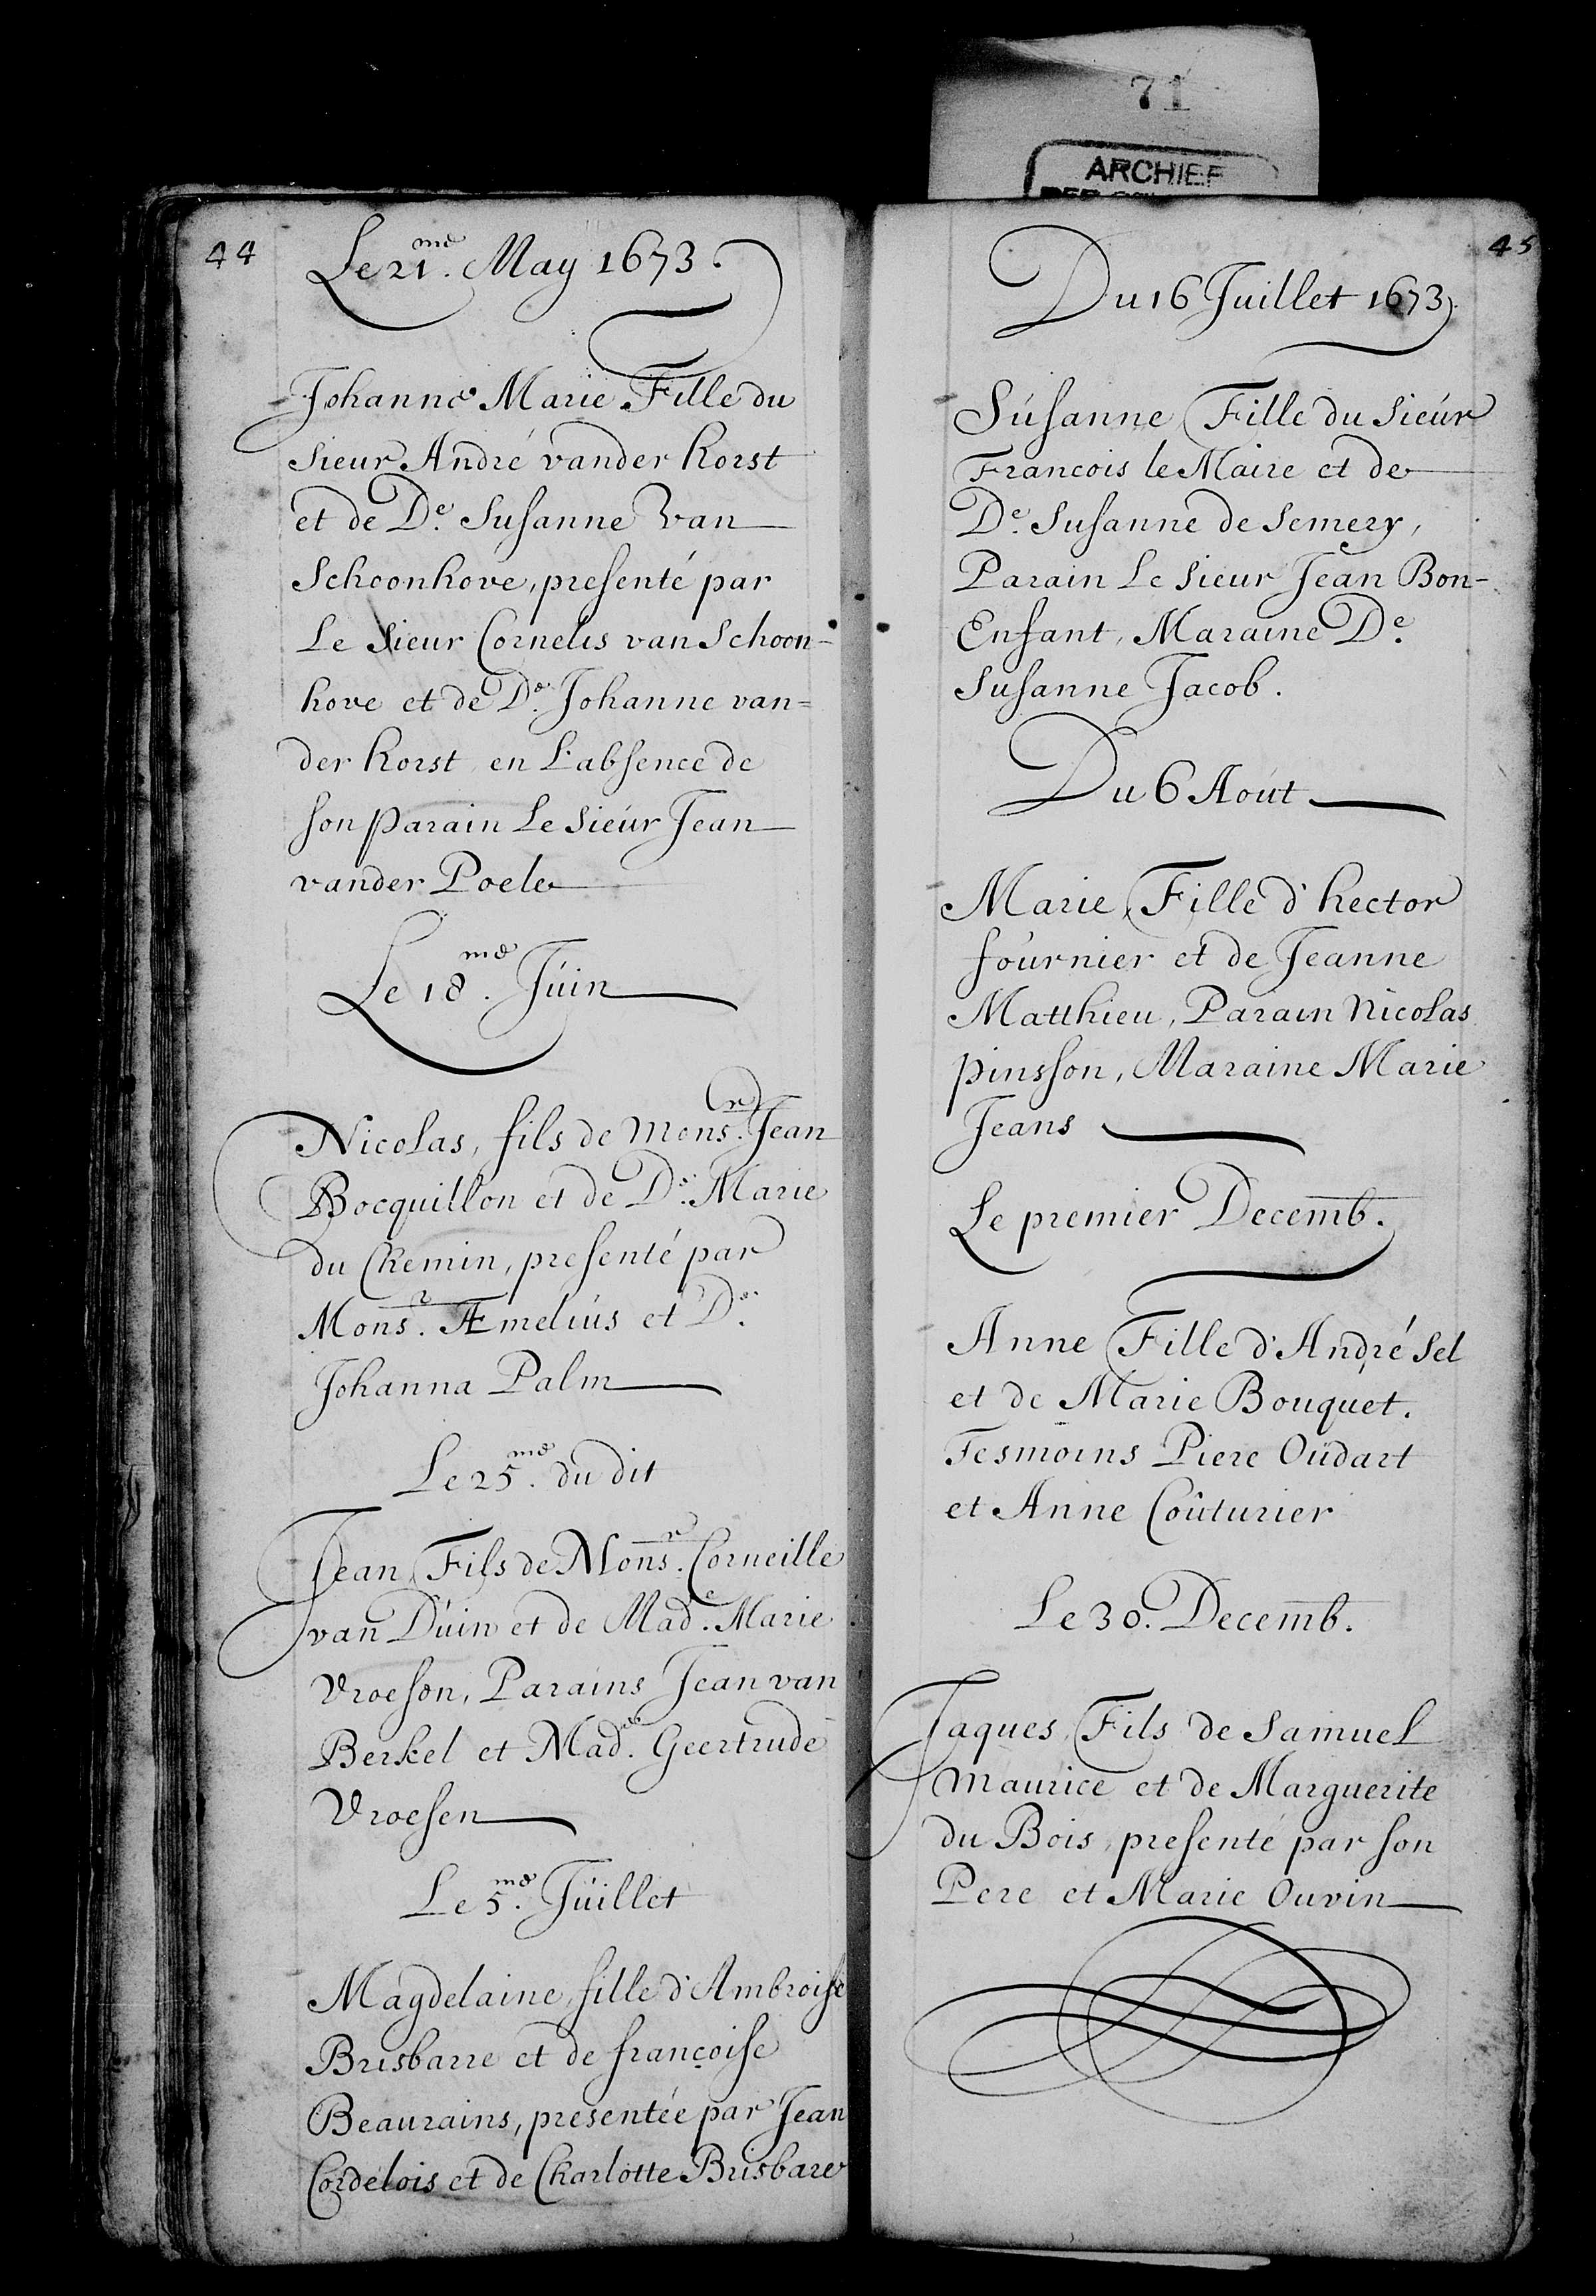 71
ARCHIEF
44
Le 21.me May 1673.
Johanne Marie Fille du
sieur André vander horst
et de De. Susanne Van
Schoonhove, presenté par
Le Sieur Cornelis van Schoon-
hove et de De. Johanne van=
der horst en L'absence de
son parain Le Sieur Jean
vander Poele
Le 18.me Juin
Nicolas, fils de Monsr. Jean
Bocquillon et de De. Marie
du Chemin, presenté par
Monsr. Æmelius et De.
Johanna Palm
Le 25.me du dit
Jean, Fils de Monsr. Corneille
van Duin et de Made. Marie
Vroeson, Parains Jean van
Berkel et Made. Geertrude
Vroesen
Le 5.me Juillet
Magdelaine, fille d'Ambroise
Brisbarre et de françoise
Beaurains, presentée par Jean
Cordelois et de Charlotte Brisbare
45
Du 16 Juillet 1673.
Susanne Fille du Sieur
Francois le Maire et de
De. Susanne de Semery,
Parain Le Sieur Jean Bon-
Enfant, Maraine De.
Susanne Jacob.
Du 6 Aout
Marie, Fille d'hector
fournier et de Jeanne
Matthieu, Parain Nicolas
pinsson, Maraine Marie
Jeans
Le premier Decemb.
Anne Fille d'André Sel
et de Marie Bouquet.
Tesmoins Piere Oudart
et Anne Coûturier
Le 30. Decemb.
Jaques, Fils de Samuel
Maurice et de Marguerite
du Bois, presenté par son
Pere et Marie Ouvin